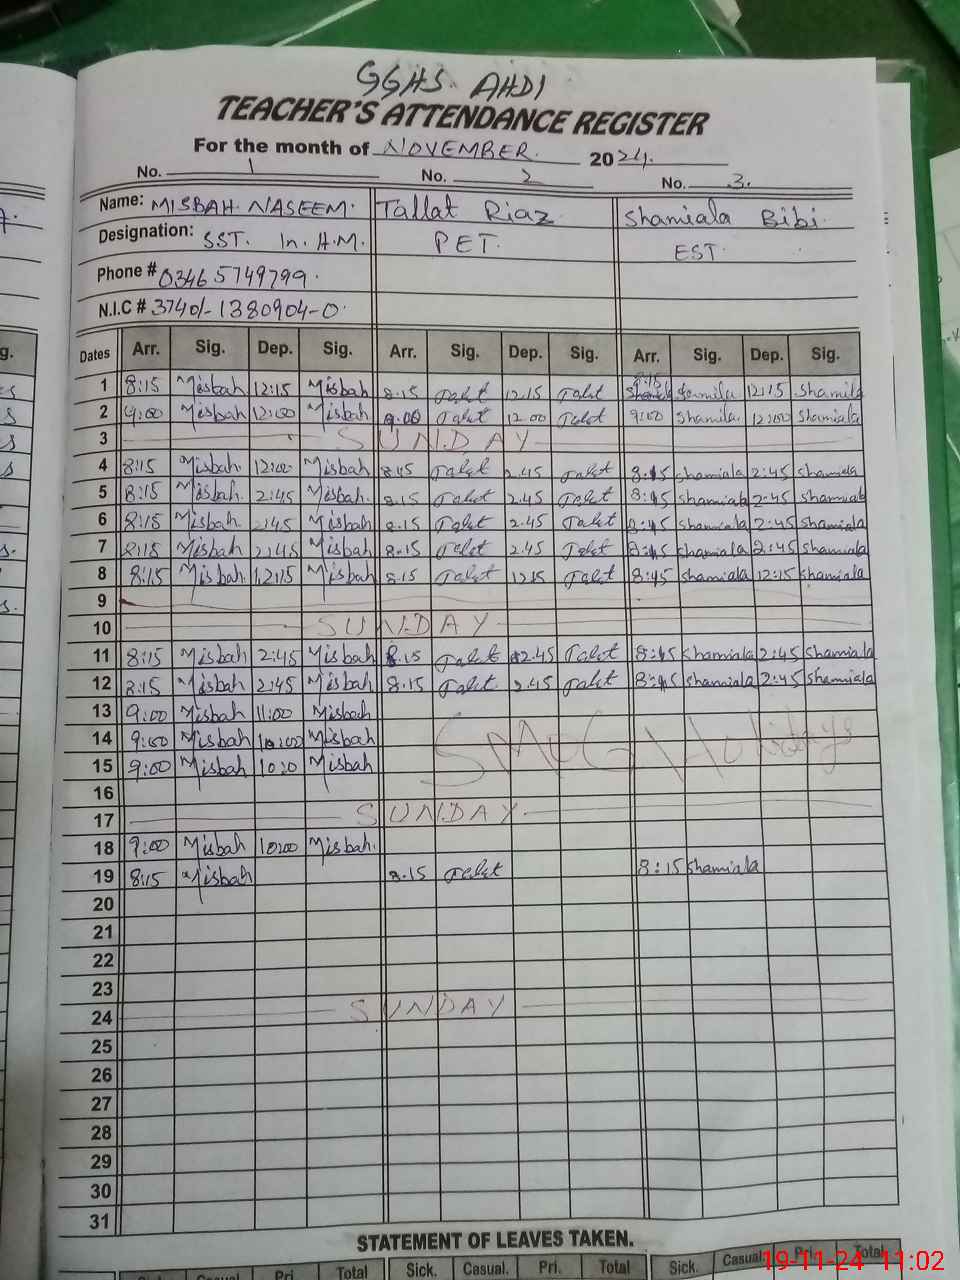 GGHS. AHDI
TEACHER'S ATTENDANCE REGISTER
For the month of NOVEMBER. 2024.
No. 1 No. 2 No. 3.
Name: MISBAH NASEEM. Tallat Riaz Shamiala Bibi
Designation: SST. In. H.M. PET. EST.
Phone # 03465749799.
N.I.C # 37401-1380904-0.
g. Dates Arr. Sig. Dep. Sig. Arr. Sig. Dep. Sig. Arr. Sig. Dep. Sig.
1 8:15 Misbah 12:15 Misbah 8.15 Talat 12.15 Talat 8:15 Shamila 12:15 Shamila
2 9:00 Misbah 12:00 Misbah 9.00 Talat 12.00 Talat 9:00 Shamila 12:00 Shamiala
3 SUNDAY
4 8:15 Misbah 12:00 Misbah 8.15 Talat 2.45 Talat 8:15 Shamiala 2:45 Shamiala
5 8:15 Misbah. 2:45 Misbah. 8.15 Talat 2.45 Talat 8:15 Shamiala 2:45 Shamiala
6 8:15 Misbah 2:45 Misbah 8.15 Talat 2.45 Talat 8:15 Shamiala 2:45 Shamiala
7 8:15 Misbah 2:45 Misbah 8.15 Talat 2.45 Talat 8:15 Shamiala 2:45 Shamiala
8 8:15 Misbah 12:15 Misbah 8.15 Talat 12.15 Talat 8:15 Shamiala 12:15 Shamiala
9
10 SUNDAY
11 8:15 Misbah 2:45 Misbah 8.15 Talat 2.45 Talat 8:15 Shamiala 2:45 Shamiala
12 8:15 Misbah 2:45 Misbah 8.15 Talat 2.45 Talat 8:15 Shamiala 2:45 Shamiala
13 9:00 Misbah 11:00 Misbah
14 9:00 Misbah 10:00 Misbah SMOG Holidays
15 9:00 Misbah 10:0 Misbah
16
17 SUNDAY
18 9:00 Misbah 10:00 Misbah.
19 8:15 Misbah 8.15 Talat 8:15 Shamiala
20
21
22
23
24 SUNDAY
25
26
27
28
29
30
31
STATEMENT OF LEAVES TAKEN.
Sick. Casual. Pri. Total Sick. Casual. Pri. Total Sick. Casual. Pri. Total
19-11-24 11:02